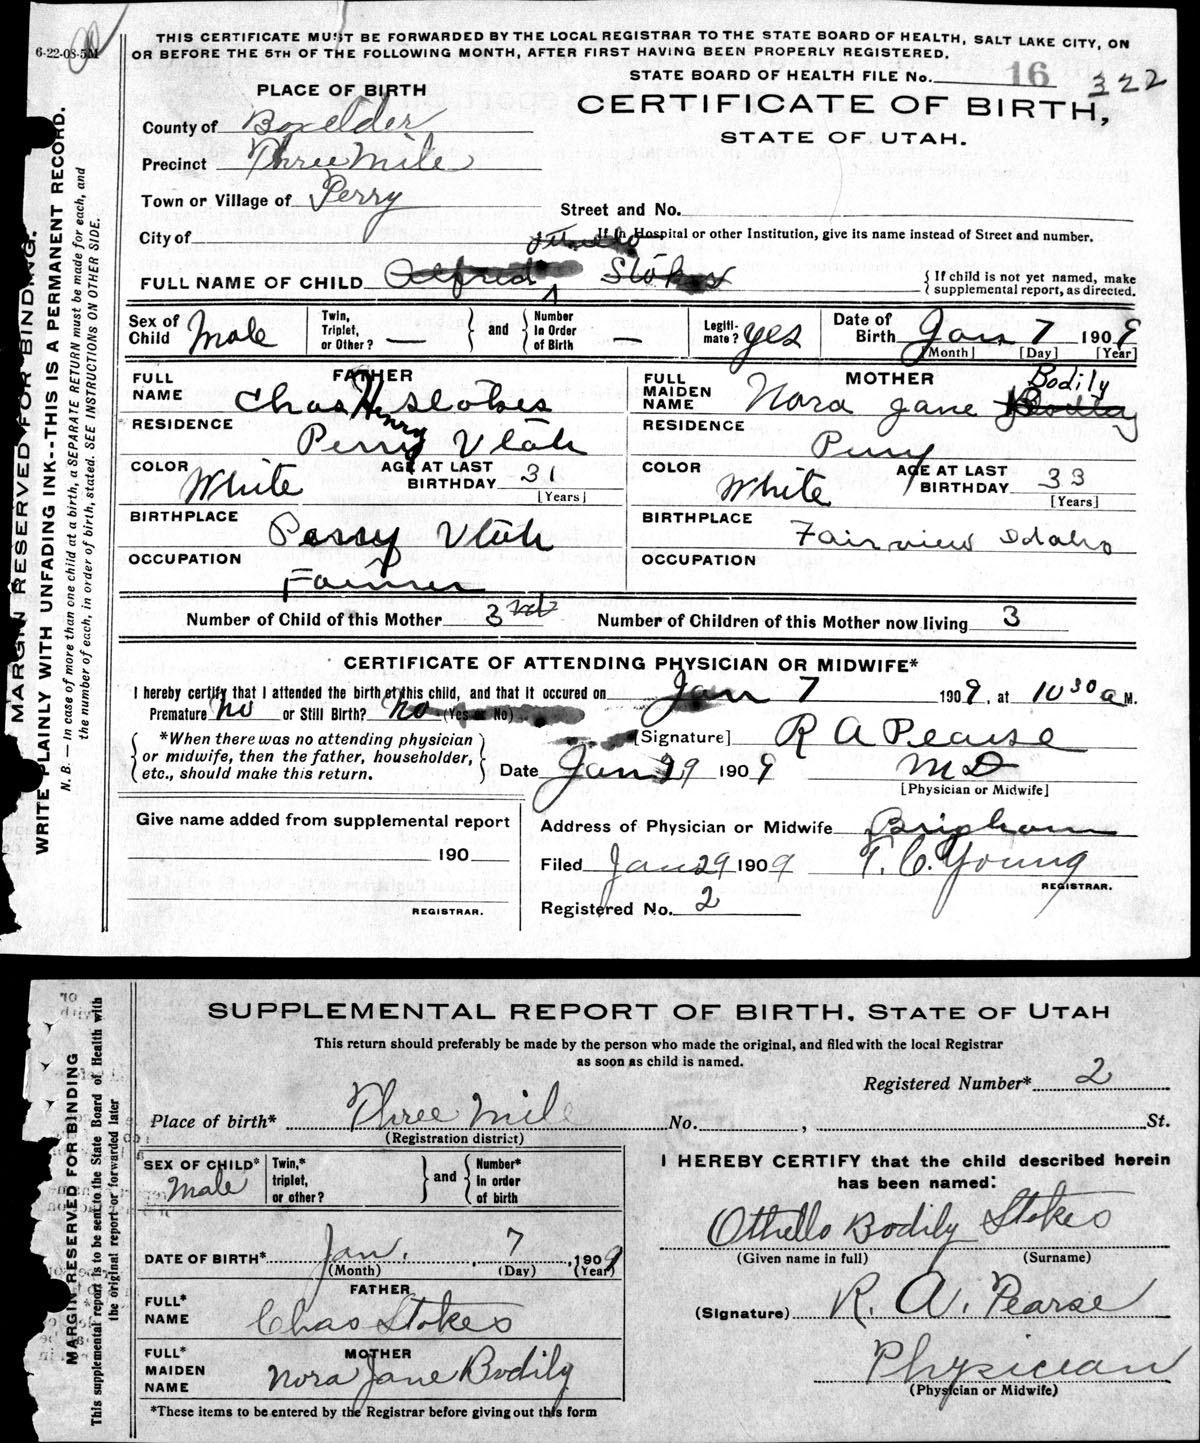 6-22-08-5M
THIS CERTIFICATE MUST BE FORWARDED BY THE LOCAL REGISTRAR TO THE STATE BOARD OF HEALTH, SALT LAKE CITY, ON
OR BEFORE THE 5TH OF THE FOLLOWING MONTH, AFTER FIRST HAVING BEEN PROPERLY REGISTERED.
STATE BOARD OF HEALTH FILE No. 16 322
PLACE OF BIRTH
CERTIFICATE OF BIRTH,
STATE OF UTAH.
County of Boxelder
Precinct Three Mile
Town or Village of Perry
Street and No.
City of
If in Hospital or other Institution, give its name instead of Street and number.
FULL NAME OF CHILD Alfred Stokes
If child is not yet named, make
supplemental report, as directed.
Sex of Child Male
Twin, Triplet, or Other? —
and
Number in Order of Birth —
Legiti-mate? yes
Date of Birth Jan 7 1909
[Month] [Day] [Year]
FATHER
FULL NAME Chas Henry Stokes
RESIDENCE Perry Utah
COLOR White
AGE AT LAST BIRTHDAY 31
[Years]
BIRTHPLACE Perry Utah
OCCUPATION Farmer
MOTHER
FULL MAIDEN NAME Nora Jane Bodily
RESIDENCE Perry
COLOR White
AGE AT LAST BIRTHDAY 33
[Years]
BIRTHPLACE Fairview Idaho
OCCUPATION
Number of Child of this Mother 3rd
Number of Children of this Mother now living 3
CERTIFICATE OF ATTENDING PHYSICIAN OR MIDWIFE*
I hereby certify that I attended the birth of this child, and that it occured on Jan 7 1909, at 10 30 a M.
Premature no or Still Birth? no (Yes or No)
*When there was no attending physician
or midwife, then the father, householder,
etc., should make this return.
[Signature] R A Pearse
Date Jan 29 1909 M D
[Physician or Midwife]
Give name added from supplemental report
190
REGISTRAR.
Address of Physician or Midwife Brigham
Filed Jan 29 1909 T. C. Young
REGISTRAR.
Registered No. 2
MARGIN RESERVED FOR BINDING.
WRITE PLAINLY WITH UNFADING INK--THIS IS A PERMANENT RECORD.
N. B. — In case of more than one child at a birth, a SEPARATE RETURN must be made for each, and
the number of each, in order of birth, stated. SEE INSTRUCTIONS ON OTHER SIDE.
SUPPLEMENTAL REPORT OF BIRTH. STATE OF UTAH
This return should preferably be made by the person who made the original, and filed with the local Registrar
as soon as child is named.
Registered Number* 2
Place of birth* Three Mile No. , St.
(Registration district)
SEX OF CHILD* Male
Twin,* triplet, or other?
and
Number* In order of birth
DATE OF BIRTH* Jan. 7, 1909
(Month) (Day) (Year)
FATHER
FULL* NAME Chas Stokes
MOTHER
FULL* MAIDEN NAME Nora Jane Bodily
*These items to be entered by the Registrar before giving out this form
I HEREBY CERTIFY that the child described herein
has been named:
Othello Bodily Stokes
(Given name in full) (Surname)
(Signature) R. A. Pearse
Physician
(Physician or Midwife)
MARGIN RESERVED FOR BINDING
This supplemental report is to be sent to the State Board of Health with
the original report or forwarded later